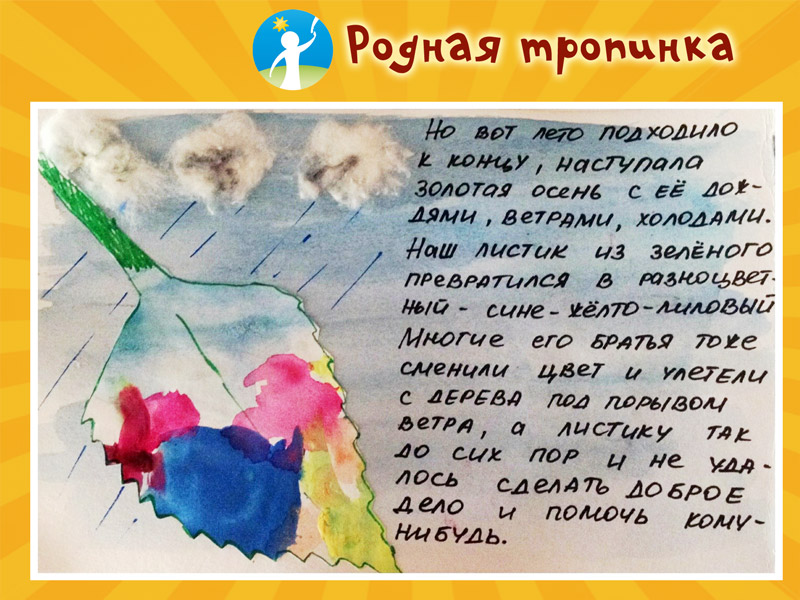 Родная тропинка
Но вот лето подходило
к концу, наступала
золотая осень с её дож-
дями, ветрами, холодами.
Наш листик из зелёного
превратился в разноцвет-
ный - сине-жёлто-лиловый
Многие его братья тоже
сменили цвет и улетели
с дерева под порывом
ветра, а листику так
до сих пор и не уда-
лось сделать доброе
дело и помочь кому-
нибудь.